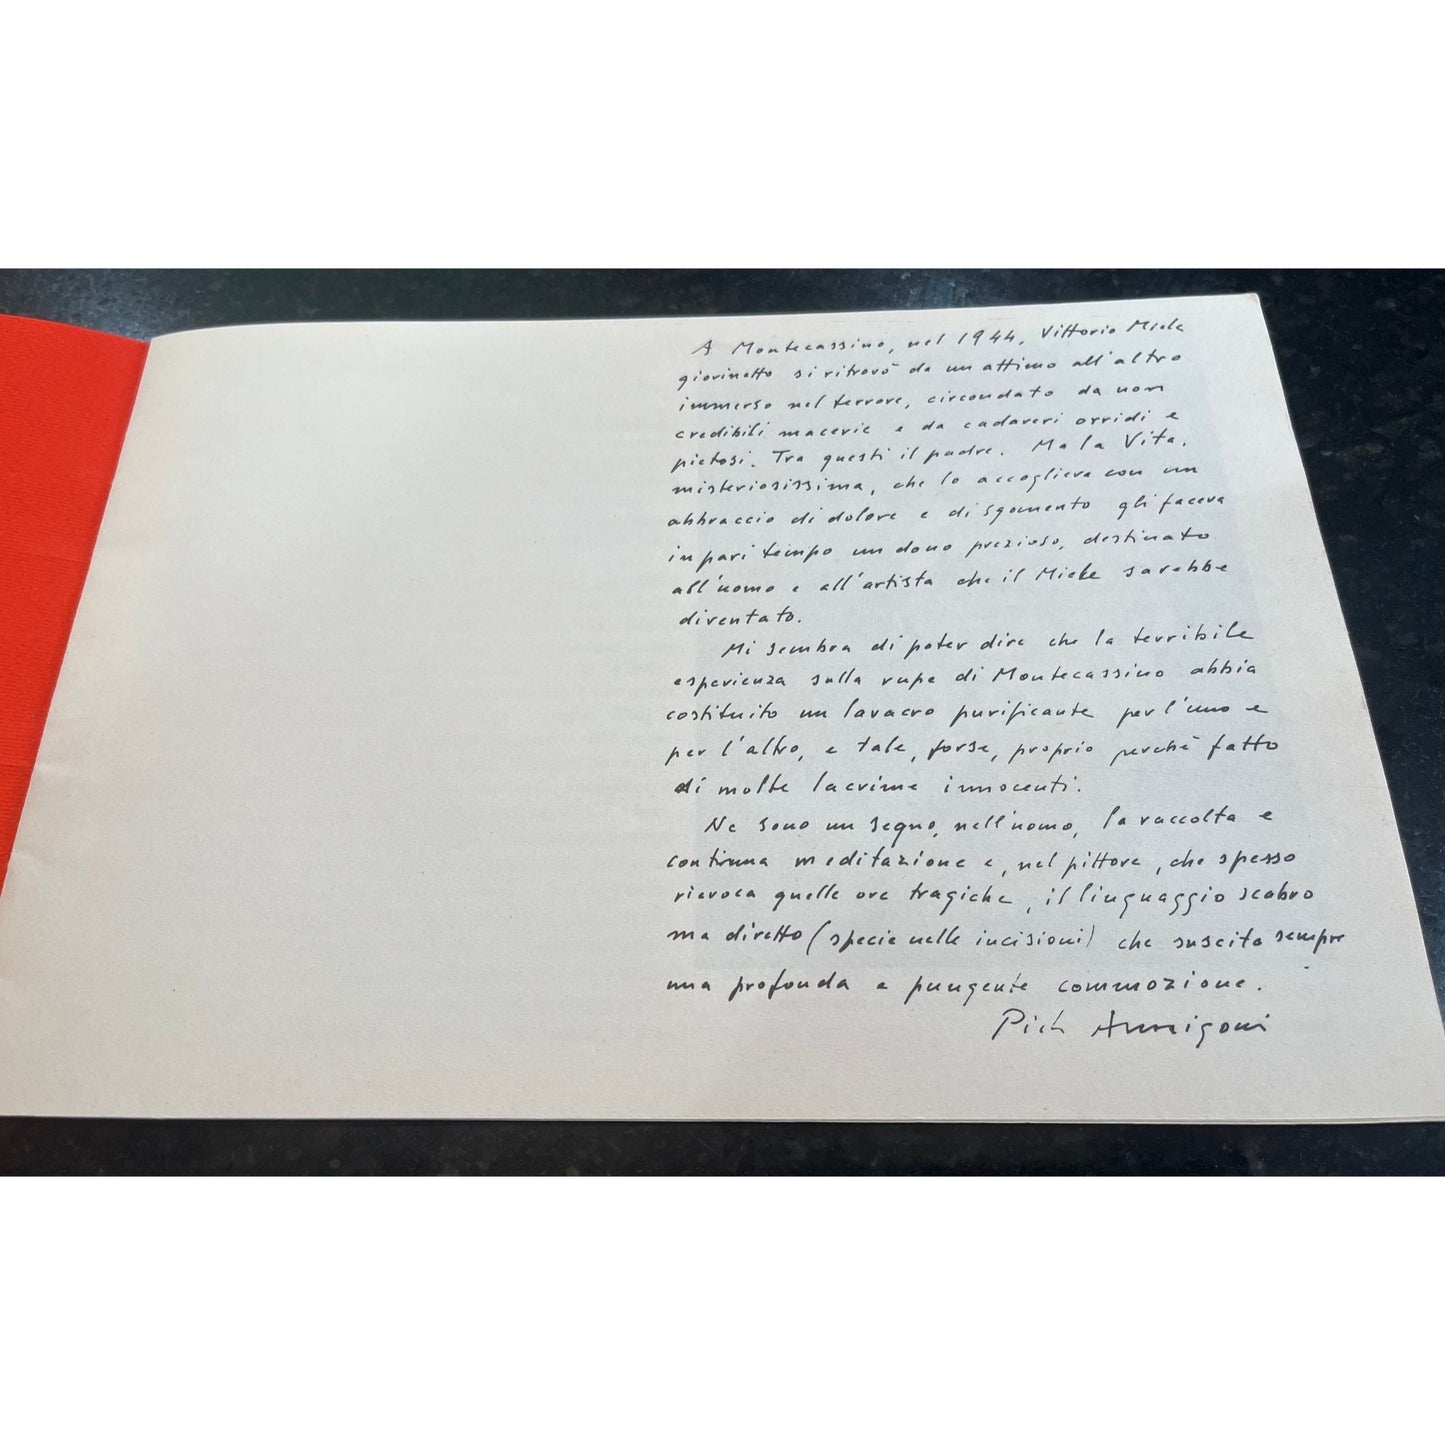 A Montecassino, nel 1944, Vittorio Miele
giovinetto si ritrovò da un attimo all'altro
immerso nel terrore, circondato da non
credibili macerie e da cadaveri orridi e
pietosi. Tra questi il padre. Ma la Vita,
misteriosissima, che lo accoglieva con un
abbraccio di dolore e di sgomento gli faceva
in pari tempo un dono prezioso, destinato
all'uomo e all'artista che il Miele sarebbe
diventato.
Mi sembra di poter dire che la terribile
esperienza sulla rupe di Montecassino abbia
costituito un lavacro purificante per l'uno e
per l'altro, e tale, forse, proprio perchè fatto
di molte lacrime innocenti.
Ne sono un segno, nell'uomo, la raccolta e
continua meditazione e, nel pittore, che spesso
rievoca quelle ore tragiche, il linguaggio scabro
ma diretto (specie nelle incisioni) che suscita sempre
una profonda e pungente commozione.
Pietro Annigoni